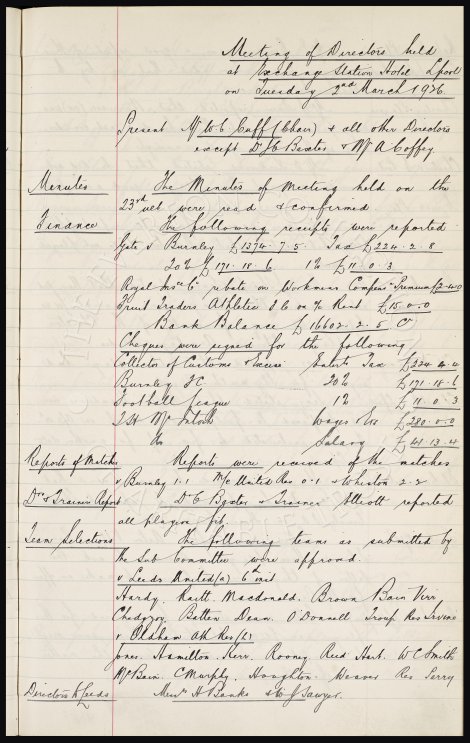 Meeting of Directors held
at Exchange Station Hotel Lpool
on Tuesday 2nd March 1926.
Present Mr W C Cuff (Chair) & all other Directors
except Dr J C Baxter & Mr A Coffey
Minutes The Minutes of Meeting held on the
23rd ult were read & confirmed
Finance The following receipts were reported
Gate v Burnley £1374.7.5. Tax £224.2.8
20% £171.18.6 1% £11.0.3
Royal Insce Co rebate on Workmens Compens Premium £2.4.0
Fruit Traders Athletic on a/c Rent £15.0.0
Bank Balance £16602.2.5 Cr
Cheques were signed for the following
Collector of Customs & Excise Entert Tax £224.4.4
Burnley F.C. 20% £171.18.6
Football League 1% £11.0.3
T H McIntosh Wages &c £280.0.0
Do Salary £41.13.4
Reports of Matches Reports were received of the matches
v Burnley 1.1 M/c United Res 0.1 & Whiston 2.2
Drs & Trainers Report Dr C Baxter & Trainer Elliott reported
all players fit.
Team Selections The following teams as submitted by
the Sub Committee were approved.
v Leeds United (a) 6th inst
Hardy. Raitt. Macdonald. Brown Bain Virr
Chedgzoy. Batten Dean. O'Donnell Troup Res Irvine
v Oldham Ath Res (h)
Jones. Hamilton. Kerr. Rooney Reid Hart. W C Smith
McBain. C Murphy. Houghton. Weaver Res Terry
Directors to Leeds Messrs H Banks & W J Sawyer.